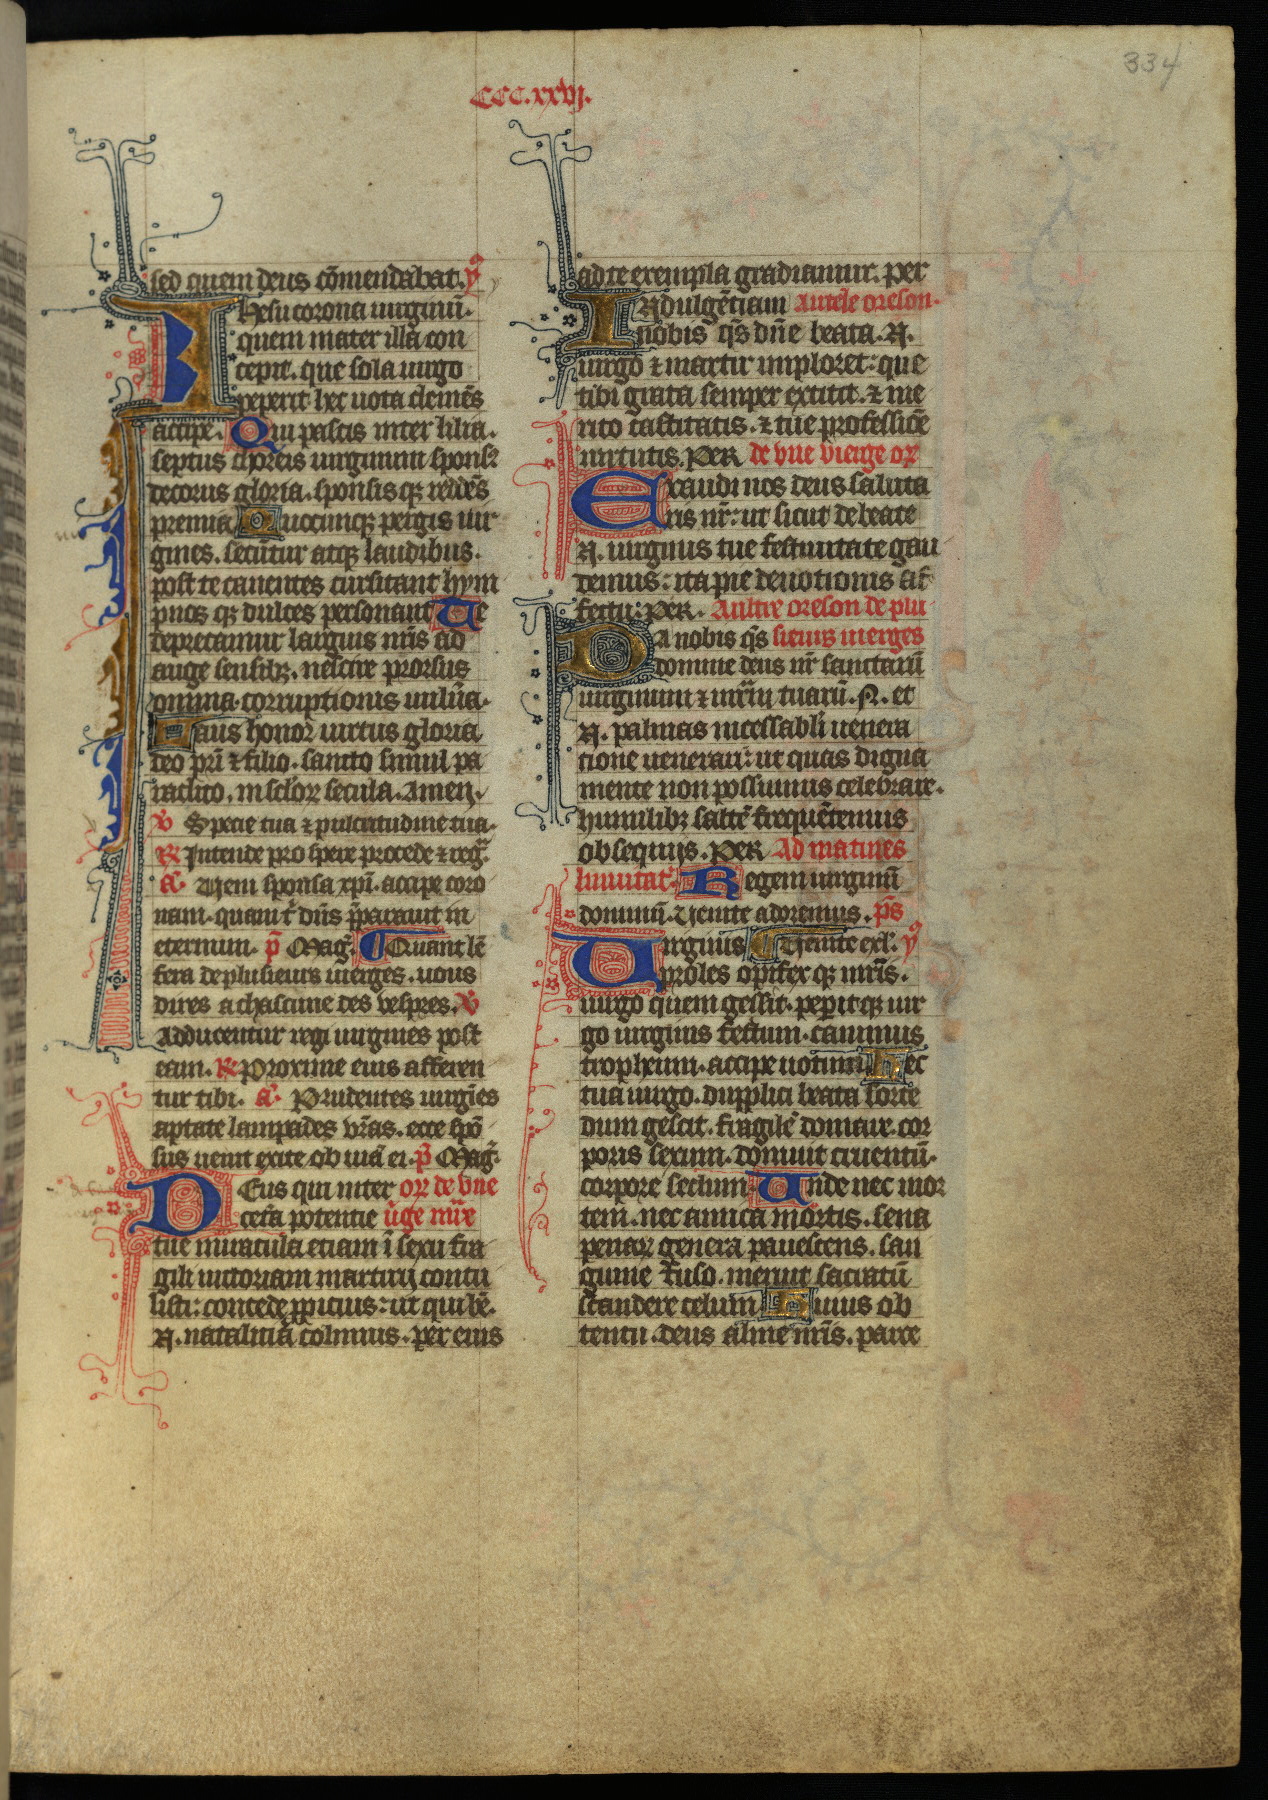 334
CCC.xxvj.
sed quem deus co̅mendabat. y̅
Ihesu corona uirginu̅.
quem mater illa con
cepit. que sola uirgo
peperit hec uota cleme̅s
accipe. Qui pascis inter lilia.
septus choreis uirginum sponsꝰ
decorus gloria. sponsisqꝫ redde̅s
premia Quocunqꝫ pergis uir
gines. secu̅tur atqꝫ laudibus.
post te canentes cursitant hym
pnos qꝫ dulces personant Te
deprecamur largius nr̅is ad
auge sensibꝫ. nescire prorsus
omnia corruptionis uuln̅a.
Laus honor uirtus gloria
deo pr̅i ⁊ filio. sancto simul pa
raclito. in sc̅lorꝝ secula. Amen.
V Specie tua ⁊ pulcritudine tua.
R Intende prospere procede ⁊ reg̅.
a̅. Ueni sponsa xp̅i. accipe coro
nam. quam t̅ dn̅s p̅parauit in
eternum. p̅ Mag̅. Quant le̅
fera de plusieurs uierges. uous
dires a chascune des vespres. V
Adducentur regi uirgines post
eam. R Proxime eius afferen
tur tibi. a̅. Prudentes uirgi̅es
aptate lampades vr̅as. ecce spo̅
sus uenit exite obuia̅ ei. p̅ Mag̅.
Deus qui inter or̅ de vne
cet̅a potentie u̅ge mr̅e
tue miracula etiam i̅ sexu fra
gili uictoriam martirij contu
listi: concede ꝓpicius: ut qui be̅.
N. natalitia̅ colimus. per eius
ad te exempla gradiamur. per
Indulge̅tiam Autele oreson.
nobis q̅s dn̅e beata. N.
uirgo ⁊ martir imploret: que
tibi grata semper extitit. ⁊ me
rito castitatis. ⁊ tue professio̅e
uirtutis. Per de vne vierge or̅
Exaudi nos deus saluta
ris nr̅: ut sicut de beate
N. uirginis tue festiuitate gau
demus: ita pie deuotionis af
fectu: Per. Aultre oreson de plu
Da nobis q̅s sieurs uierges
domine deus nr̅ sanctaru̅
uirginum ⁊ mr̅ij tuaru̅. N. et
N. palmas incessabli̅ uenera
tione uenerari: ut quas digna
mente non possumus celebrare.
humilibꝫ salte̅ freque̅temus
obsequijs. Per Ad matines
Inuitat̅. Regem uirginu̅
dominu̅. Uenite adoremus. ps̅
Uirginis Uenite exl̅. y̅
proles opifex qꝫ mr̅is.
uirgo quem gessit. peperitqꝫ uir
go uirginis festum. canimus
tropheum. accipe uotum Hec
tua uirgo. dupplici beata sorte
dum gescit. fragile̅ domare. cor
poris sexum. domuit cruentu̅.
corpore seclum Unde nec mor
tem. nec amica mortis. seua
penarꝝ genera pauescens. san
guine fuso. meruit sacratu̅
scandere celum Huius ob
tentu. deus alme nr̅is. parce